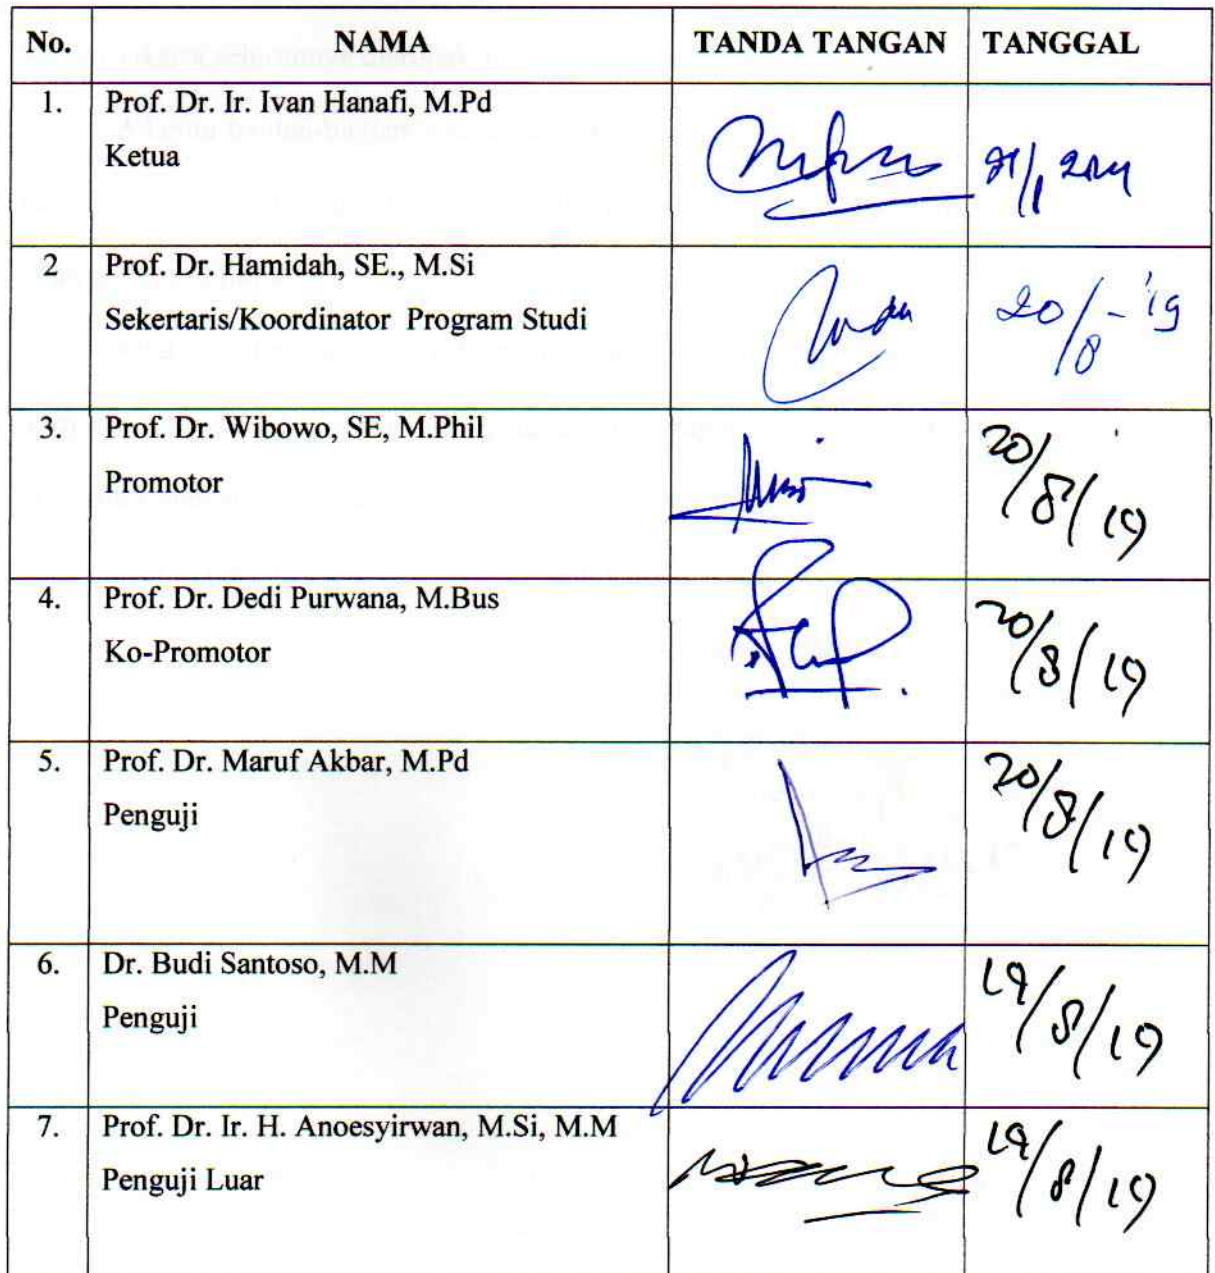 No. NAMA TANDA TANGAN TANGGAL
1. Prof. Dr. Ir. Ivan Hanafi, M.Pd
Ketua
2 Prof. Dr. Hamidah, SE., M.Si
Sekertaris/Koordinator Program Studi
20/8-'19
3. Prof. Dr. Wibowo, SE, M.Phil
Promotor
20/8/19
4. Prof. Dr. Dedi Purwana, M.Bus
Ko-Promotor
20/8/19
5. Prof. Dr. Maruf Akbar, M.Pd
Penguji
20/8/19
6. Dr. Budi Santoso, M.M
Penguji
19/8/19
7. Prof. Dr. Ir. H. Anoesyirwan, M.Si, M.M
Penguji Luar
19/8/19